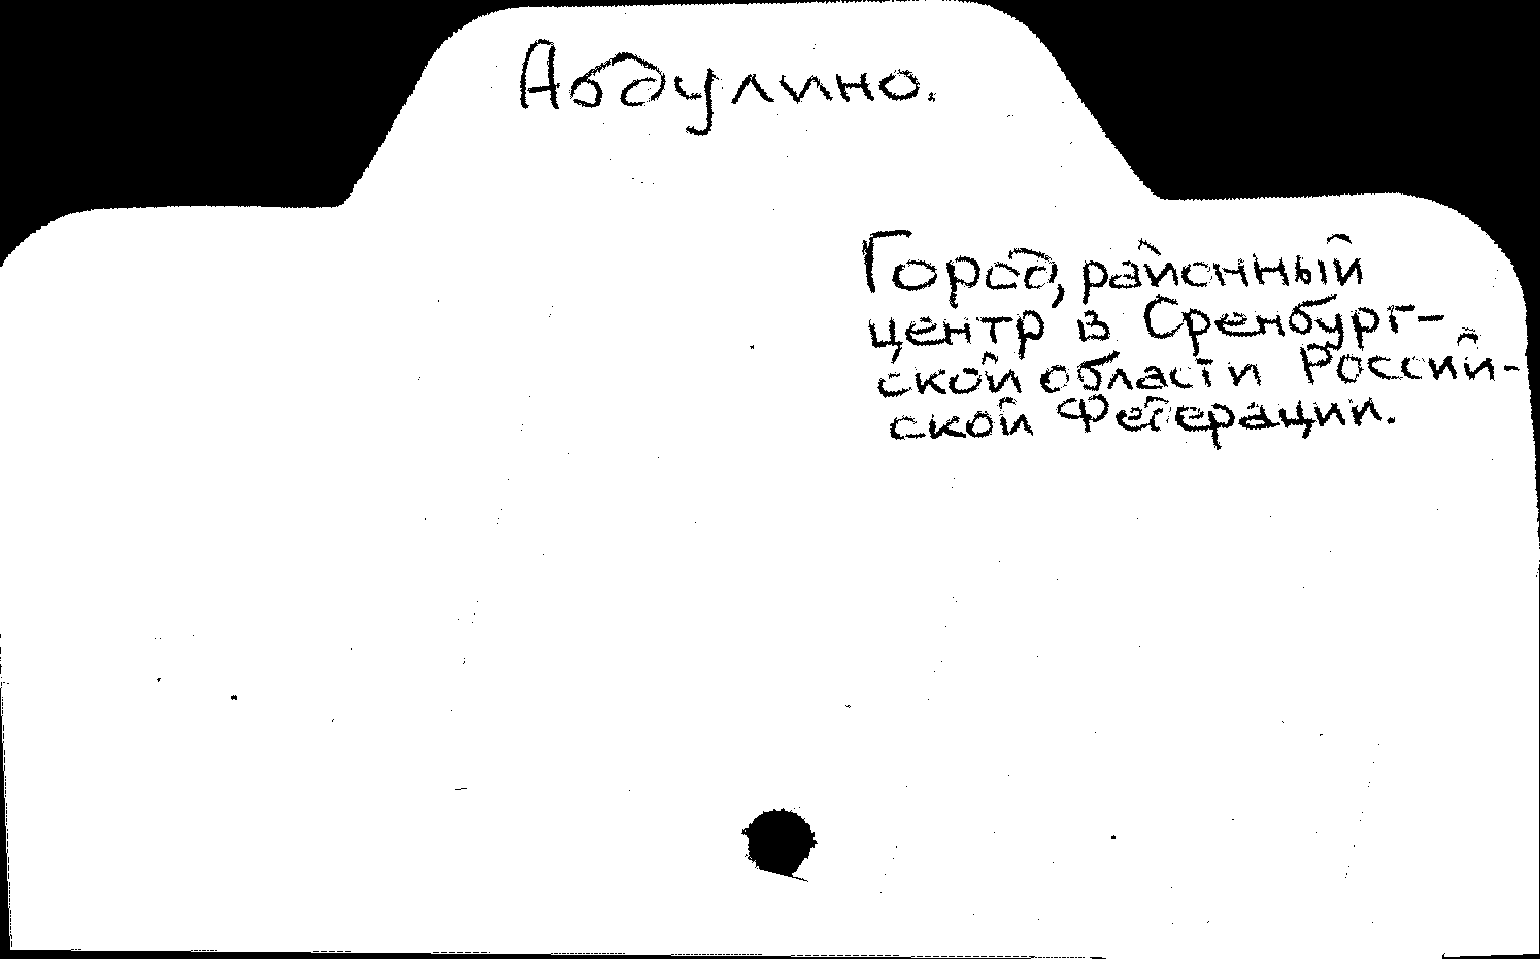 Абдулино.
Город, районный
центр в Оренбург-
ской области Россий-
ской Федерации.